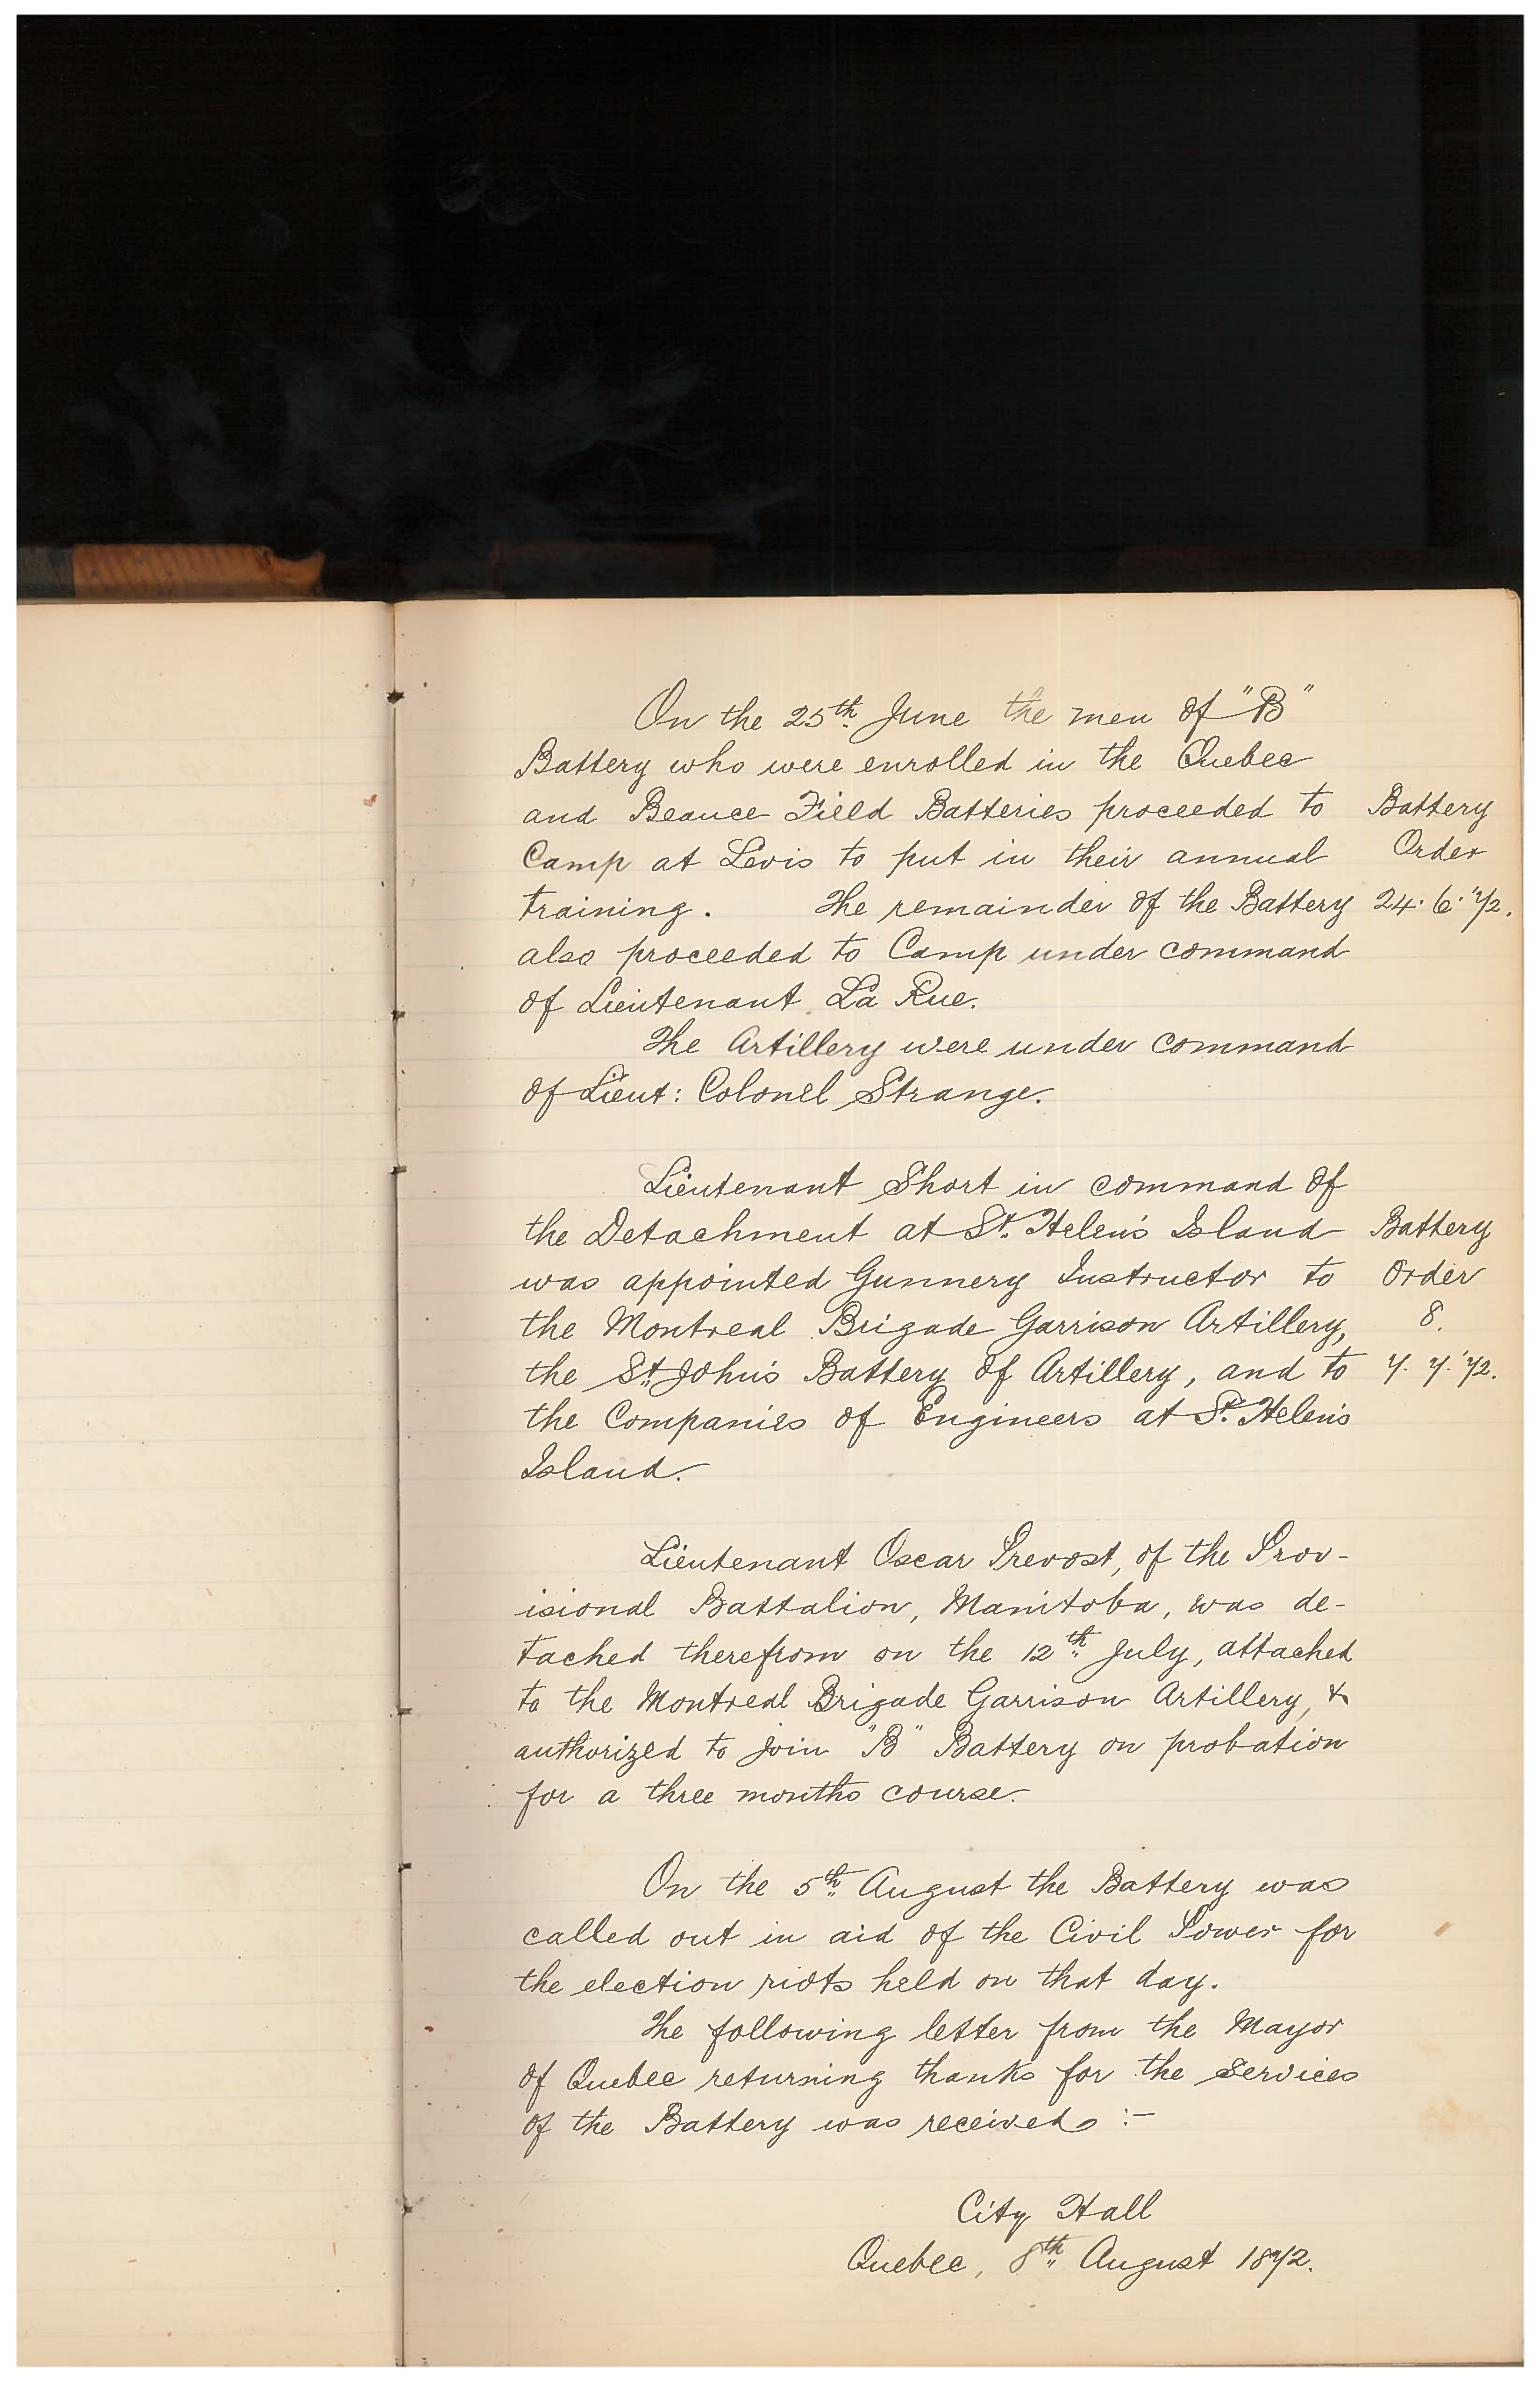 On the 25th June the men of "B"
Battery who were enrolled in the Quebec
and Beauce Field Batteries proceeded to Battery
Camp at Levis to put in their annual Order
training. The remainder of the Battery 24. 6. '72.
also proceeded to Camp under command
of Lieutenant La Rue.
The Artillery were under command
of Lieut: Colonel Strange.
Lieutenant Short in command of
the Detachment at St. Helen's Island Battery
was appointed Gunnery Instructor to Order
the Montreal Brigade Garrison Artillery, 8.
the St. John's Battery of Artillery, and to 7. 7. '72.
the Companies of Engineers at St. Helen's
Island.
Lieutenant Oscar Prevost, of the Prov-
isional Battalion, Manitoba, was de-
tached therefrom on the 12th July, attached
to the Montreal Brigade Garrison Artillery, &
authorized to join "B" Battery on probation
for a three months course.
On the 5th August the Battery was
called out in aid of the Civil Power for
the election riots held on that day.
The following letter from the Mayor
of Quebec returning thanks for the services
of the Battery was received :-
City Hall
Quebec, 8th August 1872.